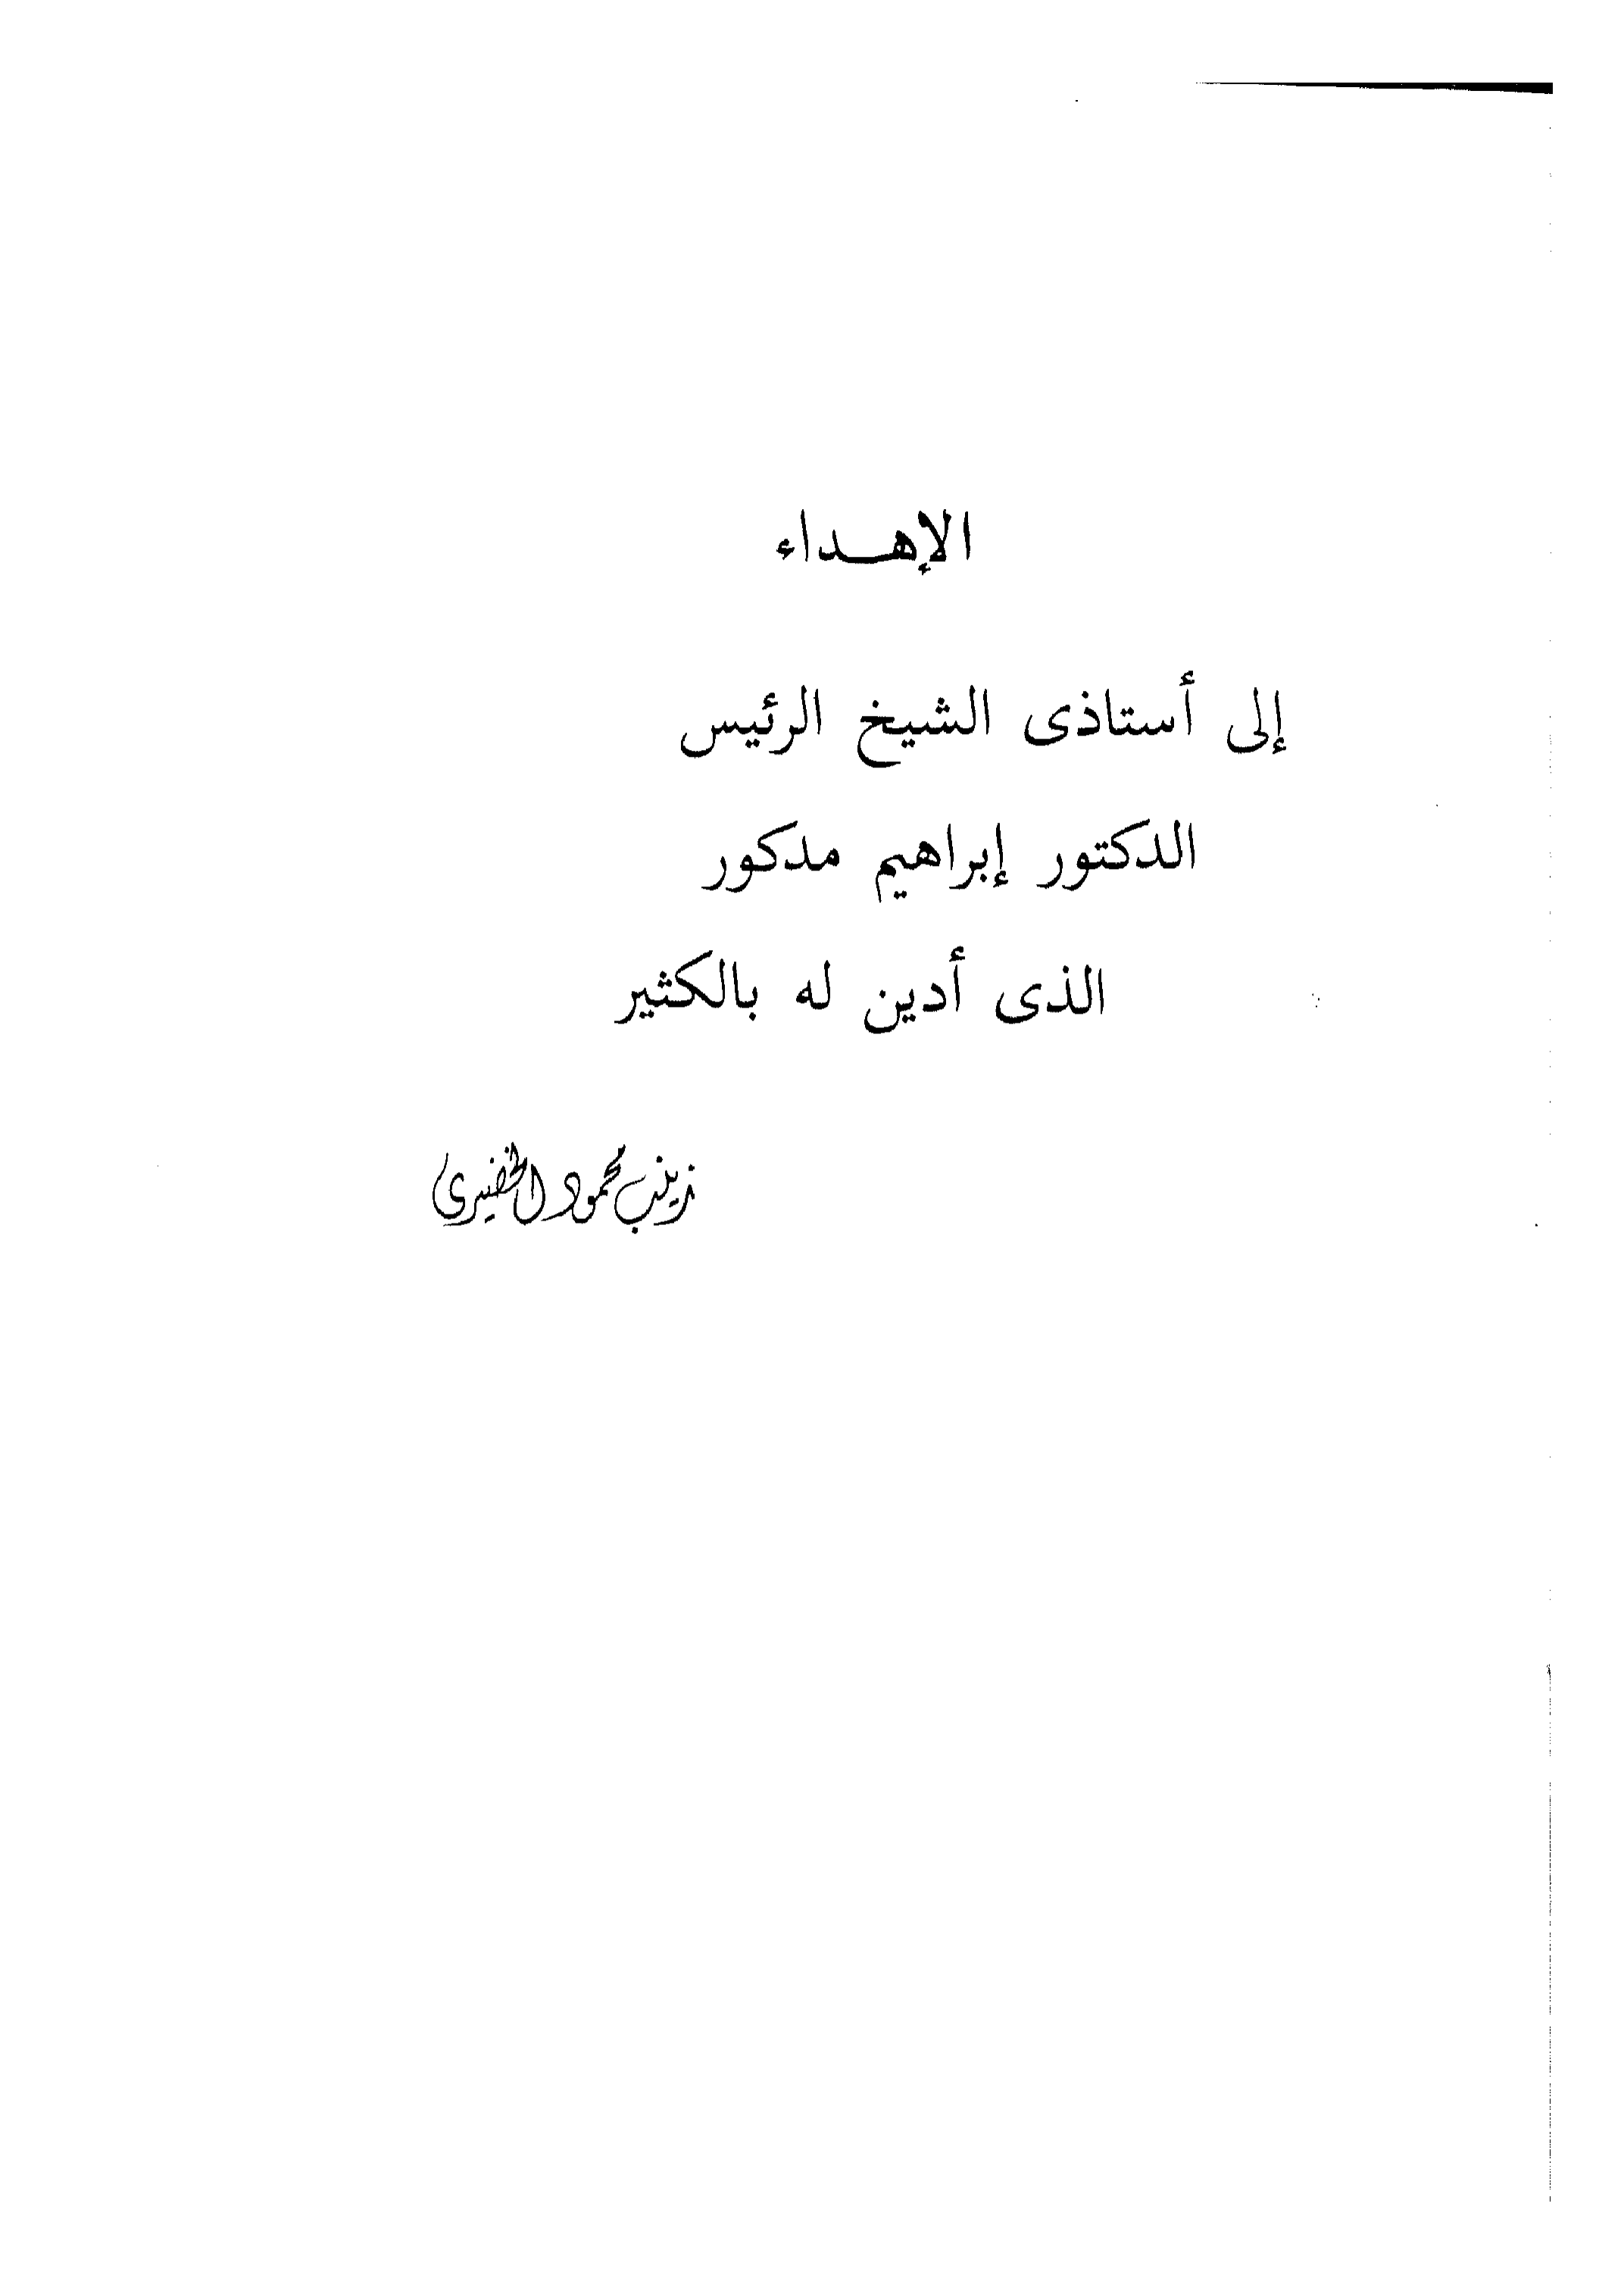 الإهداء
إلى أستاذى الشيخ الرئيس
الدكتور إبراهيم مدكور
الذى أدين له بالكثير
زينب محمود الخضيري